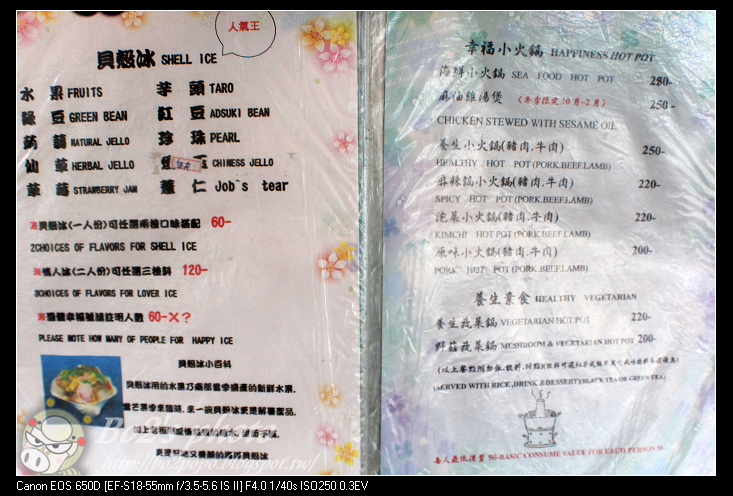 人氣王
貝殼冰 SHELL ICE
水 果 FRUITS
芋 頭 TARO
綠 豆 GREEN BEAN
紅 豆 ADSUKI BEAN
蒟 蒻 NATURAL JELLO
珍 珠 PEARL
仙 草 HERBAL JELLO
CHINESS JELLO
草 莓 STRAWBERRY JAM
薏 仁 Job`s tear
※貝殼冰(一人份)可任選兩種口味搭配 60-
2CHOICES OF FLAVORS FOR SHELL ICE
※情人冰(二人份)可任選三種料 120-
3CHOICES OF FLAVORS FOR LOVER ICE
註明人數 60-×?
PLEASE NOTE HOW MANY OF PEOPLE FOR HAPPY ICE
貝殼冰小百科
貝殼冰用的水果乃南部當季盛產的新鮮水果,
當芒果季來臨時, 來一碗貝殼冰更是解暑聖品,
幸福小火鍋 HAPPINESS HOT POT
海鮮小火鍋 SEA FOOD HOT POT 280-
麻油雞湯煲 (冬季限定10月~2月) 250-
CHICKEN STEWED WITH SESAME OIL
養生小火鍋(豬肉.牛肉) 250-
HEALTHY HOT POT (PORK.BEEF.LAMB)
麻辣鍋小火鍋(豬肉.牛肉) 220-
SPICY HOT POT (PORK.BEEF.LAMB)
泡菜小火鍋(豬肉.牛肉) 220-
KIMCHI HOT POT (PORK.BEEF.LAMB)
原味小火鍋(豬肉.牛肉) 200-
PORK HOT POT (PORK.BEEF.LAMB)
養生素食 HEALTHY VEGETARIAN
養生蔬菜鍋 VEGETARIAN HOT POT 220-
野菇蔬菜鍋 MUSHROOM & VEGETARIAN HOT POT 200-
(SERVED WITH RICE ,DRINK &DESSERT)(BLACK TEA OR GREEN TEA)
每人最低消費 50-BASIC CONSUME VALUE FOR EACH PERSON 50-
Bo2's photo
http://bo2popo.blogspot.tw/
Canon EOS 650D [EF-S18-55mm f/3.5-5.6 IS II] F4.0 1/40s ISO250 0.3EV